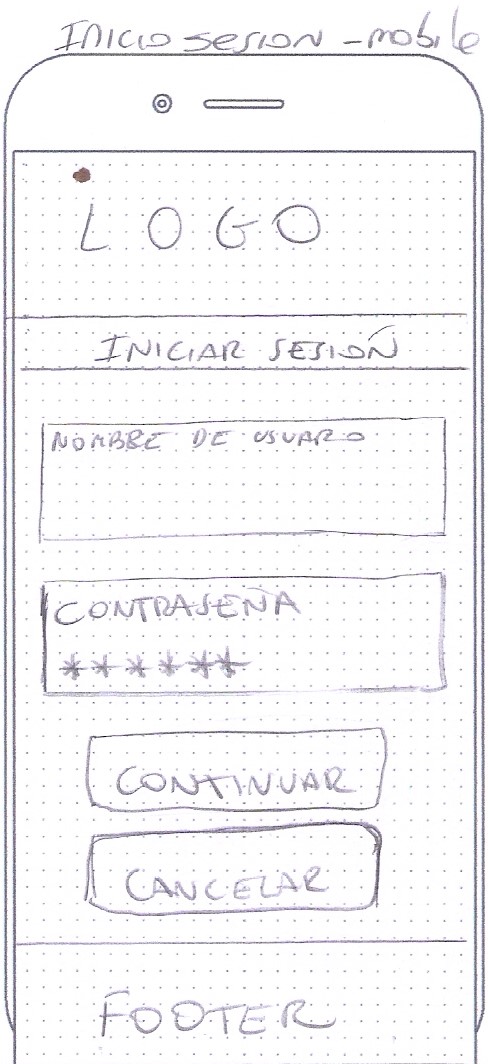 INICIO SESION - mobile
LOGO
INICIAR SESIÓN
NOMBRE DE USUARIO
CONTRASEÑA
******
CONTINUAR
CANCELAR
FOOTER